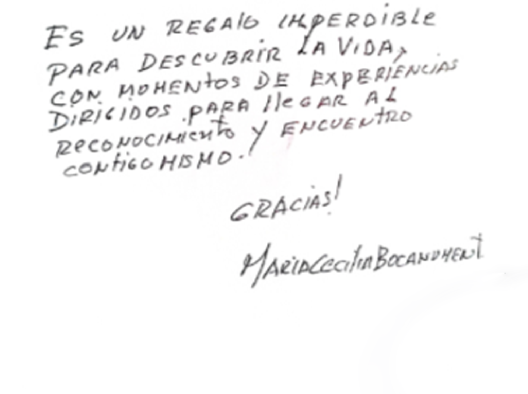 ES UN REGALO IMPERDIBLE
PARA DESCUBRIR LA VIDA,
CON MOMENTOS DE EXPERIENCIAS
DIRIGIDOS PARA LLEGAR AL
RECONOCIMIENTO Y ENCUENTRO
CONTIGO MISMO.
GRACIAS!
MARIA CECILIA BOCANUMENT